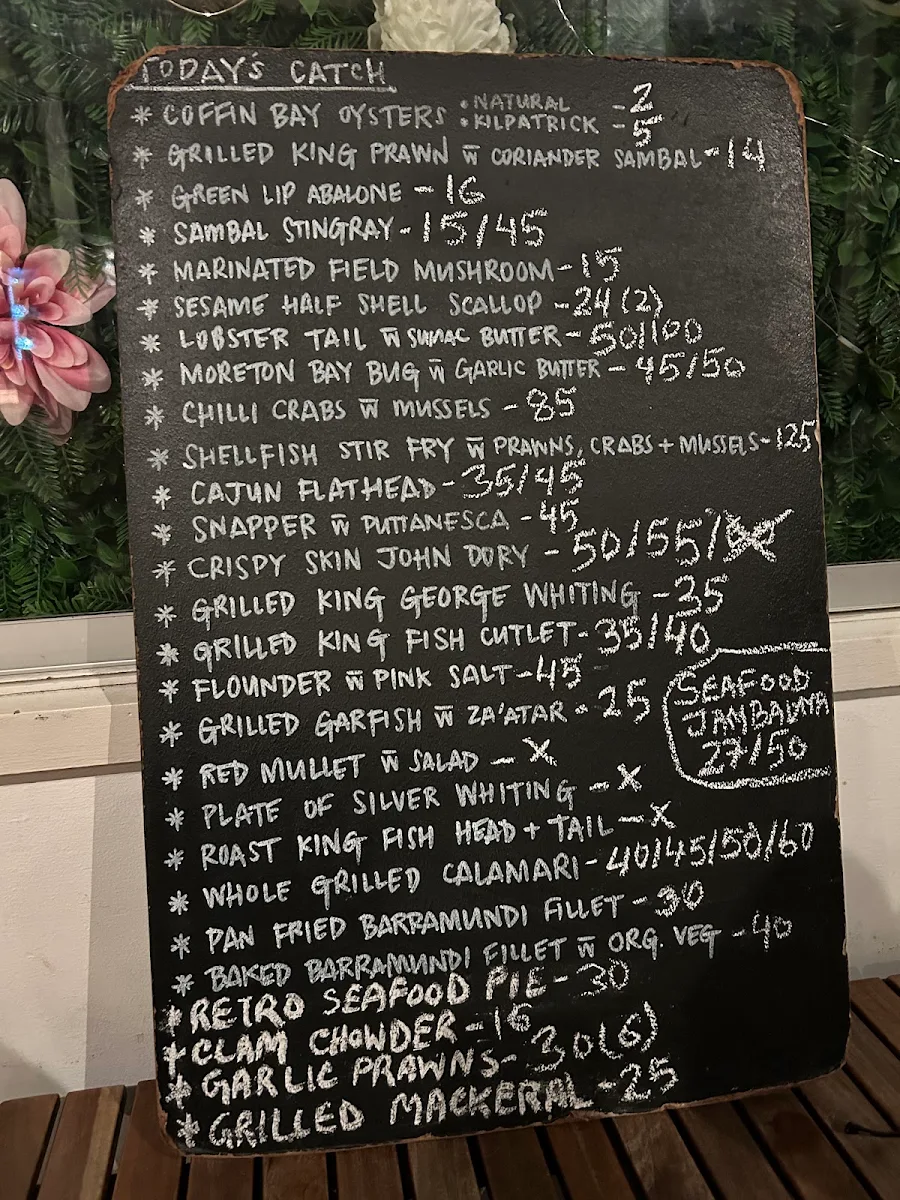 TODAY'S CATCH
* COFFIN BAY OYSTERS • NATURAL - 2
• KILPATRICK - 5
* GRILLED KING PRAWN w̄ CORIANDER SAMBAL - 14
* GREEN LIP ABALONE - 16
* SAMBAL STINGRAY - 15/45
* MARINATED FIELD MUSHROOM - 15
* SESAME HALF SHELL SCALLOP - 24 (2)
* LOBSTER TAIL w̄ SUMAC BUTTER - 50/100
* MORETON BAY BUG w̄ GARLIC BUTTER - 45/50
* CHILLI CRABS w̄ MUSSELS - 85
* SHELLFISH STIR FRY w̄ PRAWNS, CRABS + MUSSELS - 125
* CAJUN FLATHEAD - 35/45
* SNAPPER w̄ PUTTANESCA - 45
* CRISPY SKIN JOHN DORY - 50/55/
* GRILLED KING GEORGE WHITING - 35
* GRILLED KING FISH CUTLET - 35/40
* FLOUNDER w̄ PINK SALT - 45
* GRILLED GARFISH w̄ ZA'ATAR - 25
SEAFOOD
JAMBALAYA
27/50
* RED MULLET w̄ SALAD - X
* PLATE OF SILVER WHITING - X
* ROAST KING FISH HEAD + TAIL - X
* WHOLE GRILLED CALAMARI - 40/45/50/60
* PAN FRIED BARRAMUNDI FILLET - 30
* BAKED BARRAMUNDI FILLET w̄ ORG. VEG - 40
* RETRO SEAFOOD PIE - 30
* CLAM CHOWDER - 16
* GARLIC PRAWNS - 30 (6)
* GRILLED MACKERAL - 25